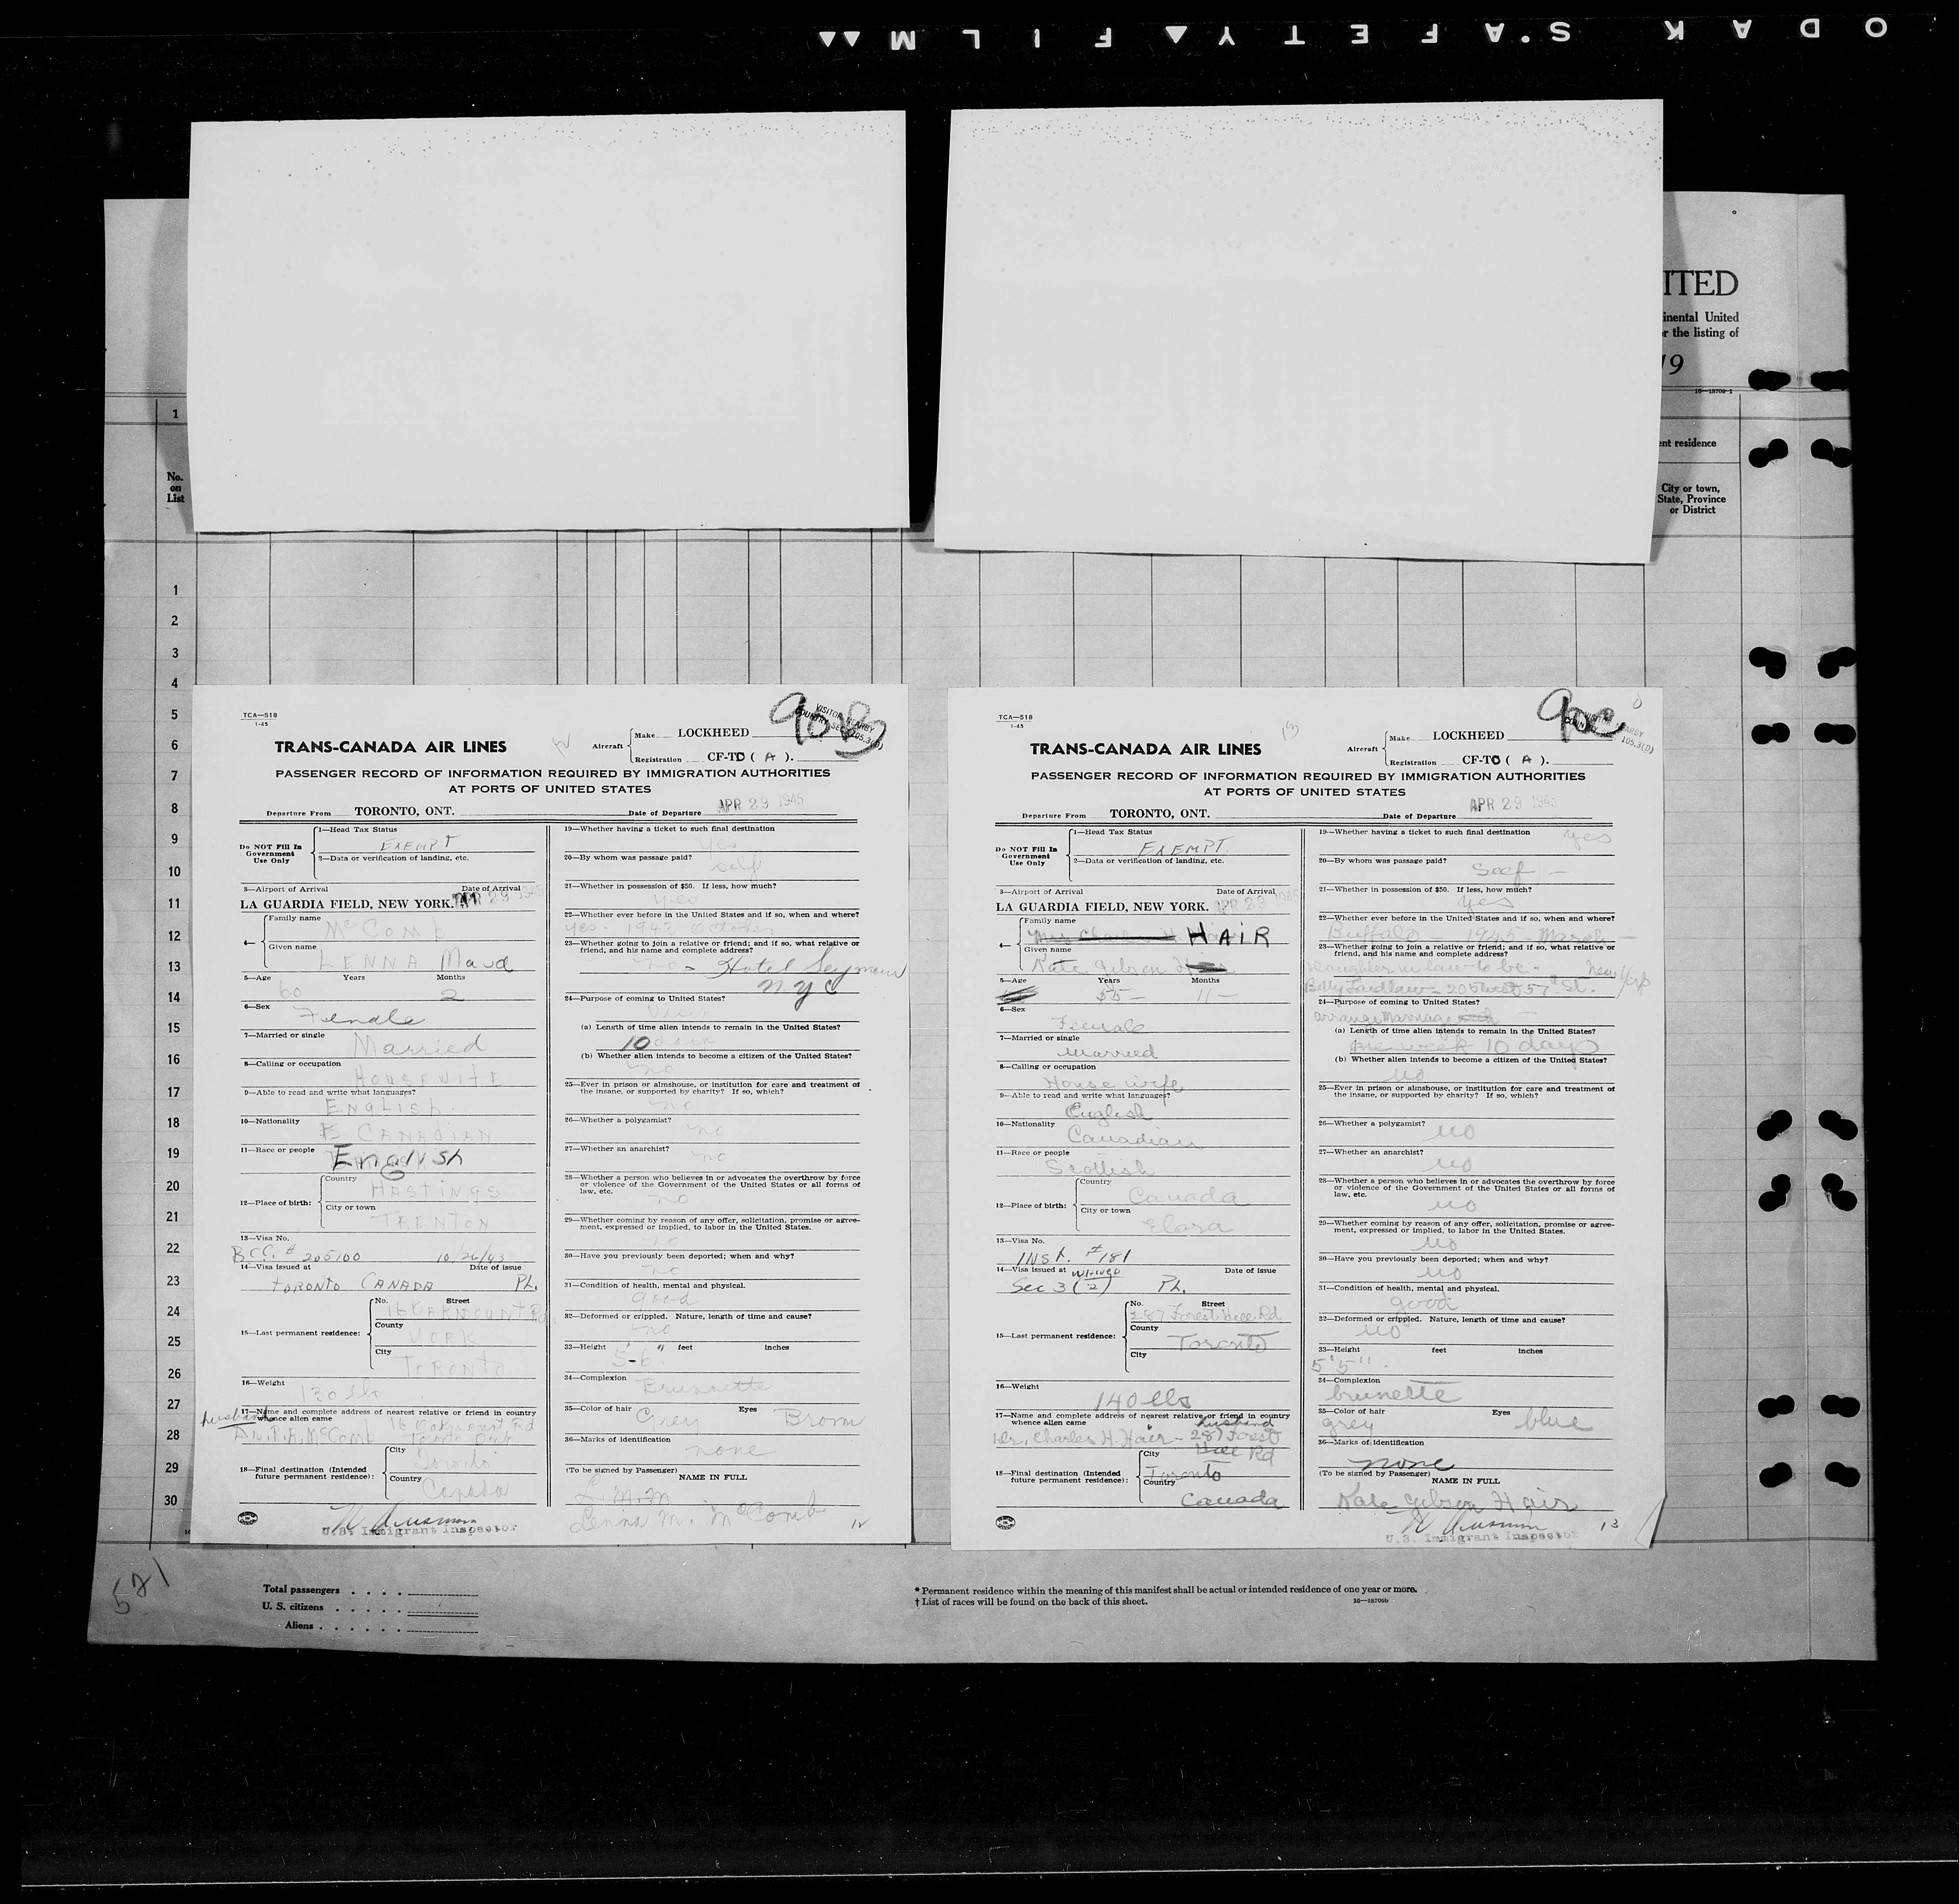 ODAK S'AFETY▲FILM▲▲▲
ITED
inental United
or the listing of
19
16—18709-1
ent residence
City or town,
State, Province
or District
No.
on
List
1
1
2
3
4
5
6
7
8
9
10
11
12
13
14
15
16
17
18
19
20
21
22
23
24
25
26
27
28
29
30
TCA—518
1-45
90B
TRANS-CANADA AIR LINES
Aircraft
Make LOCKHEED
Registration CF-TC ( A ).
PASSENGER RECORD OF INFORMATION REQUIRED BY IMMIGRATION AUTHORITIES
AT PORTS OF UNITED STATES
Departure From TORONTO, ONT. Date of Departure APR 29 1945
Do NOT Fill In
Government
Use Only
1—Head Tax Status
EXEMPT
2—Data or verification of landing, etc.
3—Airport of Arrival Date of Arrival
LA GUARDIA FIELD, NEW YORK. APR 29 1945
4—
Family name
McComb
Given name
LENNA Maud
5—Age Years Months
60 2
6—Sex
Female
7—Married or single
Married
8—Calling or occupation
HOUSEWIFE
9—Able to read and write what languages?
ENGLISH
10—Nationality
CANADIAN
11—Race or people
English
12—Place of birth:
Country
HASTINGS
City or town
TRENTON
13—Visa No.
B.C.C. # 205100 10/26/43
14—Visa issued at Date of issue
TORONTO CANADA Ph.
15—Last permanent residence:
No. Street
16 OAKMOUNT Rd
County
YORK
City
TORONTO
16—Weight
130 lbs
17—Name and complete address of nearest relative or friend in country
whence alien came
husband
McComb 16 Oakmount Rd
18—Final destination (Intended
future permanent residence):
City
Toronto
Country
Canada
U.S. Immigrant Inspector
19—Whether having a ticket to such final destination
yes
20—By whom was passage paid?
self
21—Whether in possession of $50. If less, how much?
yes
22—Whether ever before in the United States and if so, when and where?
yes - 1943 October
23—Whether going to join a relative or friend; and if so, what relative or
friend, and his name and complete address?
no - Hotel Seymour
N.Y.C
24—Purpose of coming to United States?
Visit
(a) Length of time alien intends to remain in the United States?
10 days
(b) Whether alien intends to become a citizen of the United States?
no
25—Ever in prison or almshouse, or institution for care and treatment of
the insane, or supported by charity? If so, which?
no
26—Whether a polygamist?
no
27—Whether an anarchist?
no
28—Whether a person who believes in or advocates the overthrow by force
or violence of the Government of the United States or all forms of
law, etc.
no
29—Whether coming by reason of any offer, solicitation, promise or agree-
ment, expressed or implied, to labor in the United States.
no
30—Have you previously been deported; when and why?
no
31—Condition of health, mental and physical.
good
32—Deformed or crippled. Nature, length of time and cause?
no
33—Height feet inches
5-6
34—Complexion
Brunette
35—Color of hair Eyes
Grey Brown
36—Marks of identification
none
(To be signed by Passenger)
NAME IN FULL
L. M. M
Lenna M. McComb
12
TCA—518
1-45
90C
TRANS-CANADA AIR LINES
Aircraft
Make LOCKHEED
Registration CF-TC ( A ).
PASSENGER RECORD OF INFORMATION REQUIRED BY IMMIGRATION AUTHORITIES
AT PORTS OF UNITED STATES
Departure From TORONTO, ONT. Date of Departure APR 29 1945
Do NOT Fill In
Government
Use Only
1—Head Tax Status
EXEMPT
2—Data or verification of landing, etc.
3—Airport of Arrival Date of Arrival
LA GUARDIA FIELD, NEW YORK. APR 29 1945
4—
Family name
Mrs Charles H. HAIR
Given name
Kate Gibson
5—Age Years Months
55 - 11 -
6—Sex
Female
7—Married or single
Married
8—Calling or occupation
House wife
9—Able to read and write what languages?
English
10—Nationality
Canadian
11—Race or people
Scottish
12—Place of birth:
Country
Canada
City or town
Elora
13—Visa No.
Inst. #181
14—Visa issued at Date of issue
waived
Sec 3 (2) Ph.
15—Last permanent residence:
No. Street
287 Forest Hill Rd
County
Toronto
City
16—Weight
140 lbs
17—Name and complete address of nearest relative or friend in country
whence alien came
husband
Dr. Charles H. Hair - 287 Forest
Hill Rd
18—Final destination (Intended
future permanent residence):
City
Toronto
Country
Canada
19—Whether having a ticket to such final destination
yes
20—By whom was passage paid?
Self -
21—Whether in possession of $50. If less, how much?
yes
22—Whether ever before in the United States and if so, when and where?
Buffalo - 1945 March -
23—Whether going to join a relative or friend; and if so, what relative or
friend, and his name and complete address?
daughter in law to be -
Betty Laidlaw - 205 West 57th St. New York
24—Purpose of coming to United States?
arrange marriage
(a) Length of time alien intends to remain in the United States?
one week 10 days
(b) Whether alien intends to become a citizen of the United States?
no
25—Ever in prison or almshouse, or institution for care and treatment of
the insane, or supported by charity? If so, which?
26—Whether a polygamist?
no
27—Whether an anarchist?
no
28—Whether a person who believes in or advocates the overthrow by force
or violence of the Government of the United States or all forms of
law, etc.
no
29—Whether coming by reason of any offer, solicitation, promise or agree-
ment, expressed or implied, to labor in the United States.
no
30—Have you previously been deported; when and why?
no
31—Condition of health, mental and physical.
good
32—Deformed or crippled. Nature, length of time and cause?
no
33—Height feet inches
5'5"
34—Complexion
brunette
35—Color of hair Eyes
grey blue
36—Marks of identification
none
(To be signed by Passenger)
NAME IN FULL
Kate Gibson Hair
U.S. Immigrant Inspector
13
521
Total passengers . . . .
U. S. citizens . . . . .
Aliens . . . . . .
* Permanent residence within the meaning of this manifest shall be actual or intended residence of one year or more.
† List of races will be found on the back of this sheet.
16—18709b